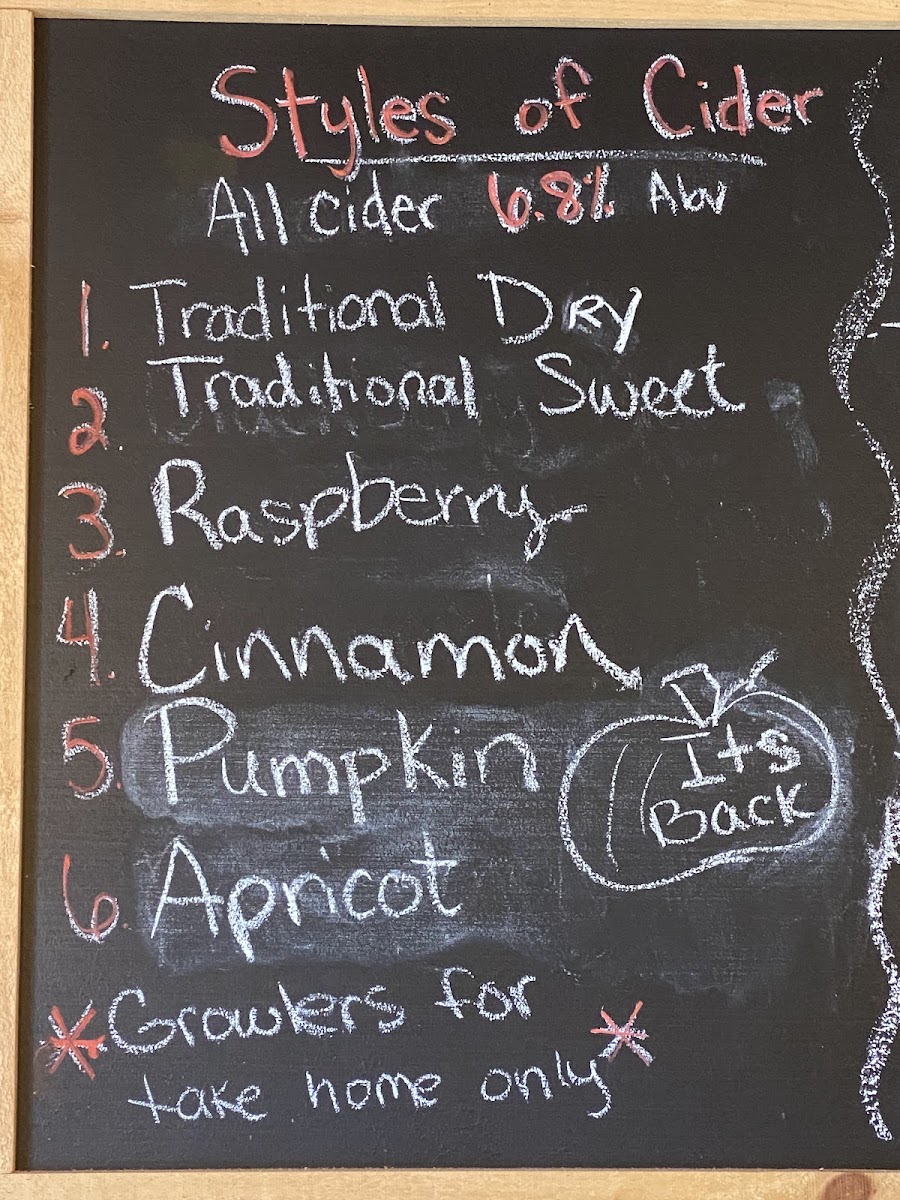 Styles of Cider
All cider 6.8% Abv
1. Traditional Dry
2. Traditional Sweet
3. Raspberry
4. Cinnamon
5. Pumpkin
Its
Back
6. Apricot
* Growlers for
take home only *